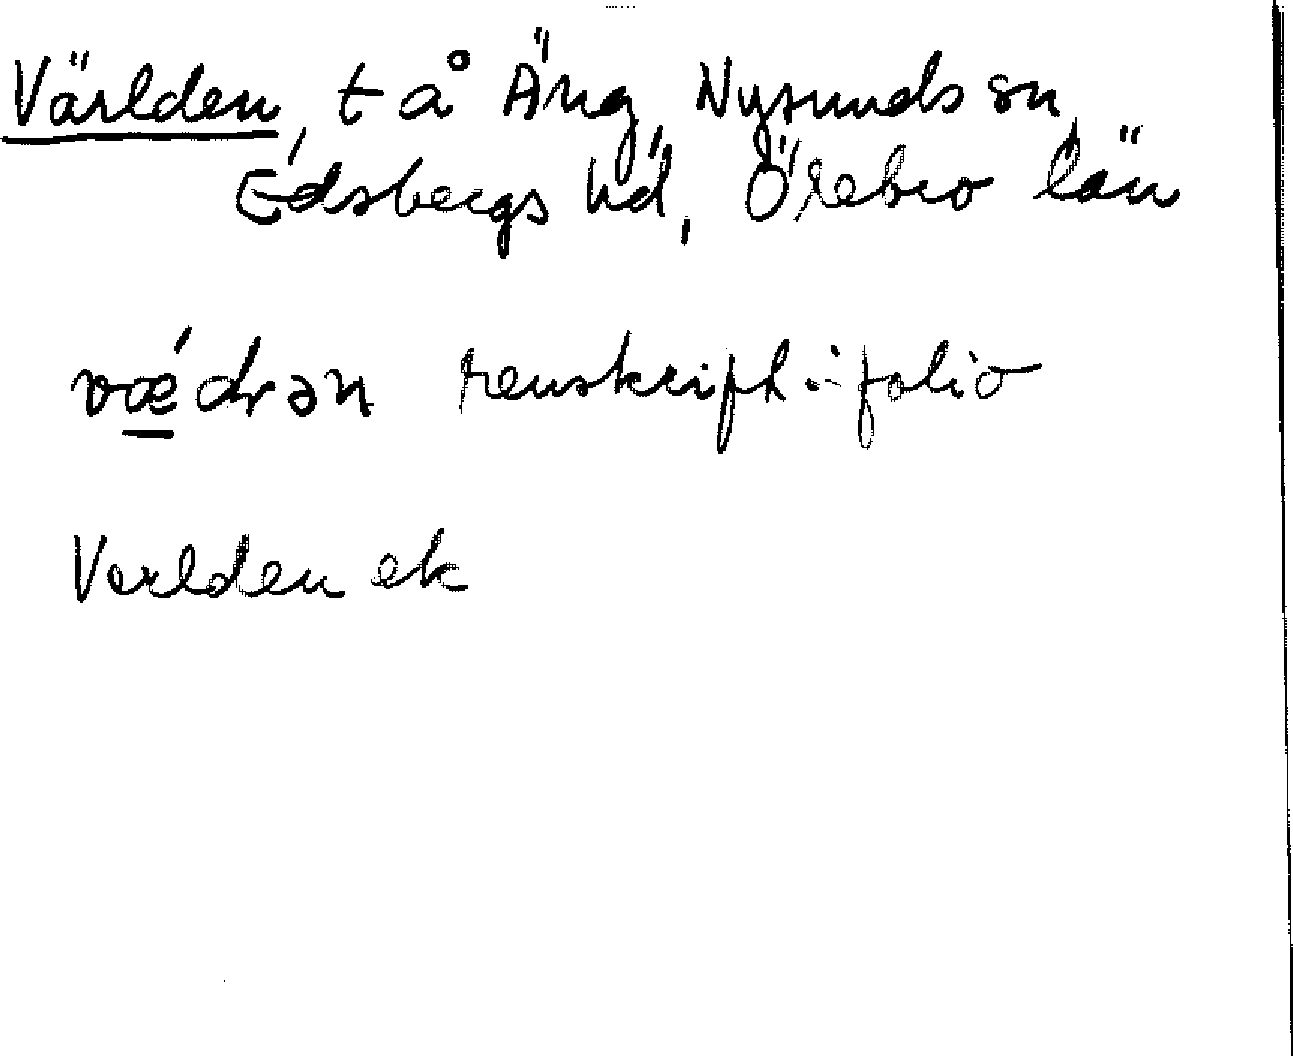 Världen, t å Äng, Nysunds sn,
Edsbergs hd, Örebro län
vǽdɹən renskript i folio
Verlden ek